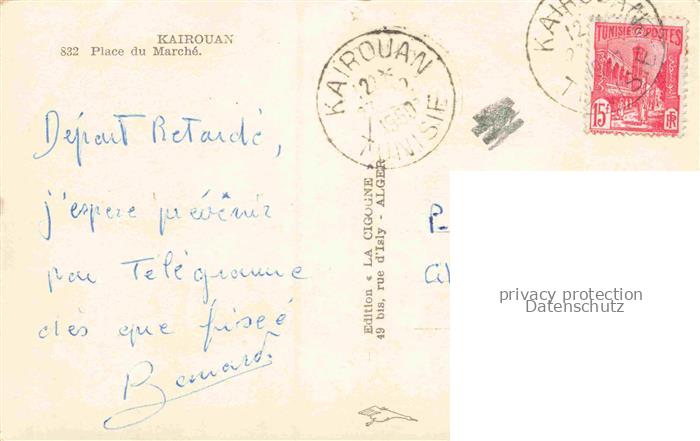 KAIROUAN
832 Place du Marché.
KAIROUAN
TUNISIE
KAIROUAN
TUNISIE POSTES
15F
RF
Départ Retardé,
j'espère prévenir
par Télégramme
dès que fixé
Bernard.
Edition « LA CIGOGNE »
49 bis, rue d'Isly - ALGER
privacy protection
Datenschutz